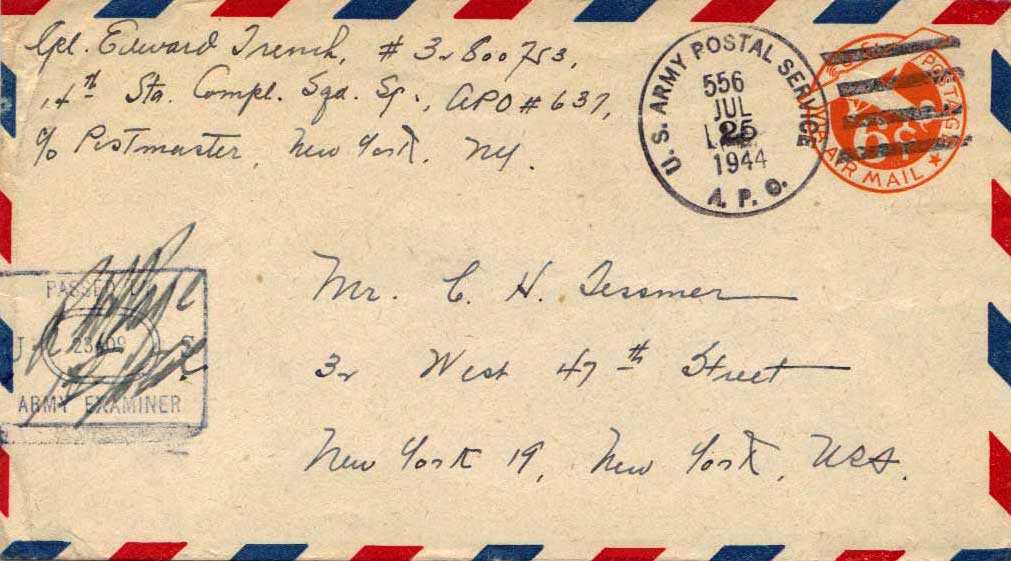 Cpl. Edward Trench, # 32800753,
14th Sta. Compl. Sqd. Sp., APO # 637,
c/o Postmaster, New York, NY.
U.S. ARMY POSTAL SERVICE
556
JUL
25
1944
A. P. O.
U.S. POSTAGE
6¢
VIA AIR MAIL
Mr. C. H. Tessmer
32 West 47th Street
New York 19, New York, USA.
PASSED
U S
ARMY EXAMINER